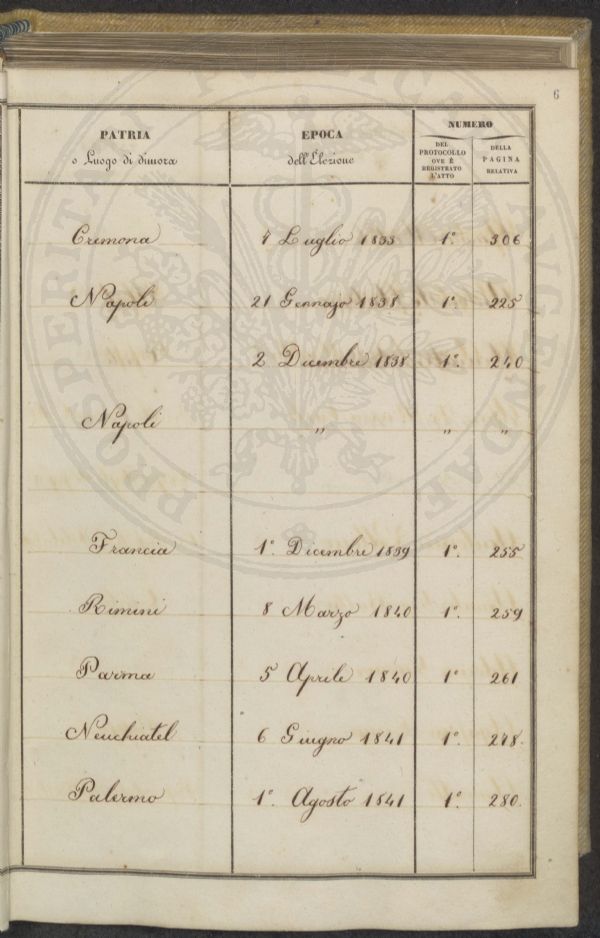 6
PATRIA
o Luogo di dimora
EPOCA
dell'Elezione
NUMERO
DEL
PROTOCOLLO
OVE È
REGISTRATO
L'ATTO
DELLA
PAGINA
RELATIVA
Cremona 7 Luglio 1833 1°. 306
Napoli 21 Gennajo 1838 1°. 225
2 Dicembre 1838 1°. 240
Napoli " " "
Francia 1° Dicembre 1839 1°. 255
Rimini 8 Marzo 1840 1°. 259
Parma 5 Aprile 1840 1° 261
Neuchiatel 6 Giugno 1841 1°. 278.
Palermo 1° Agosto 1841 1°. 280.